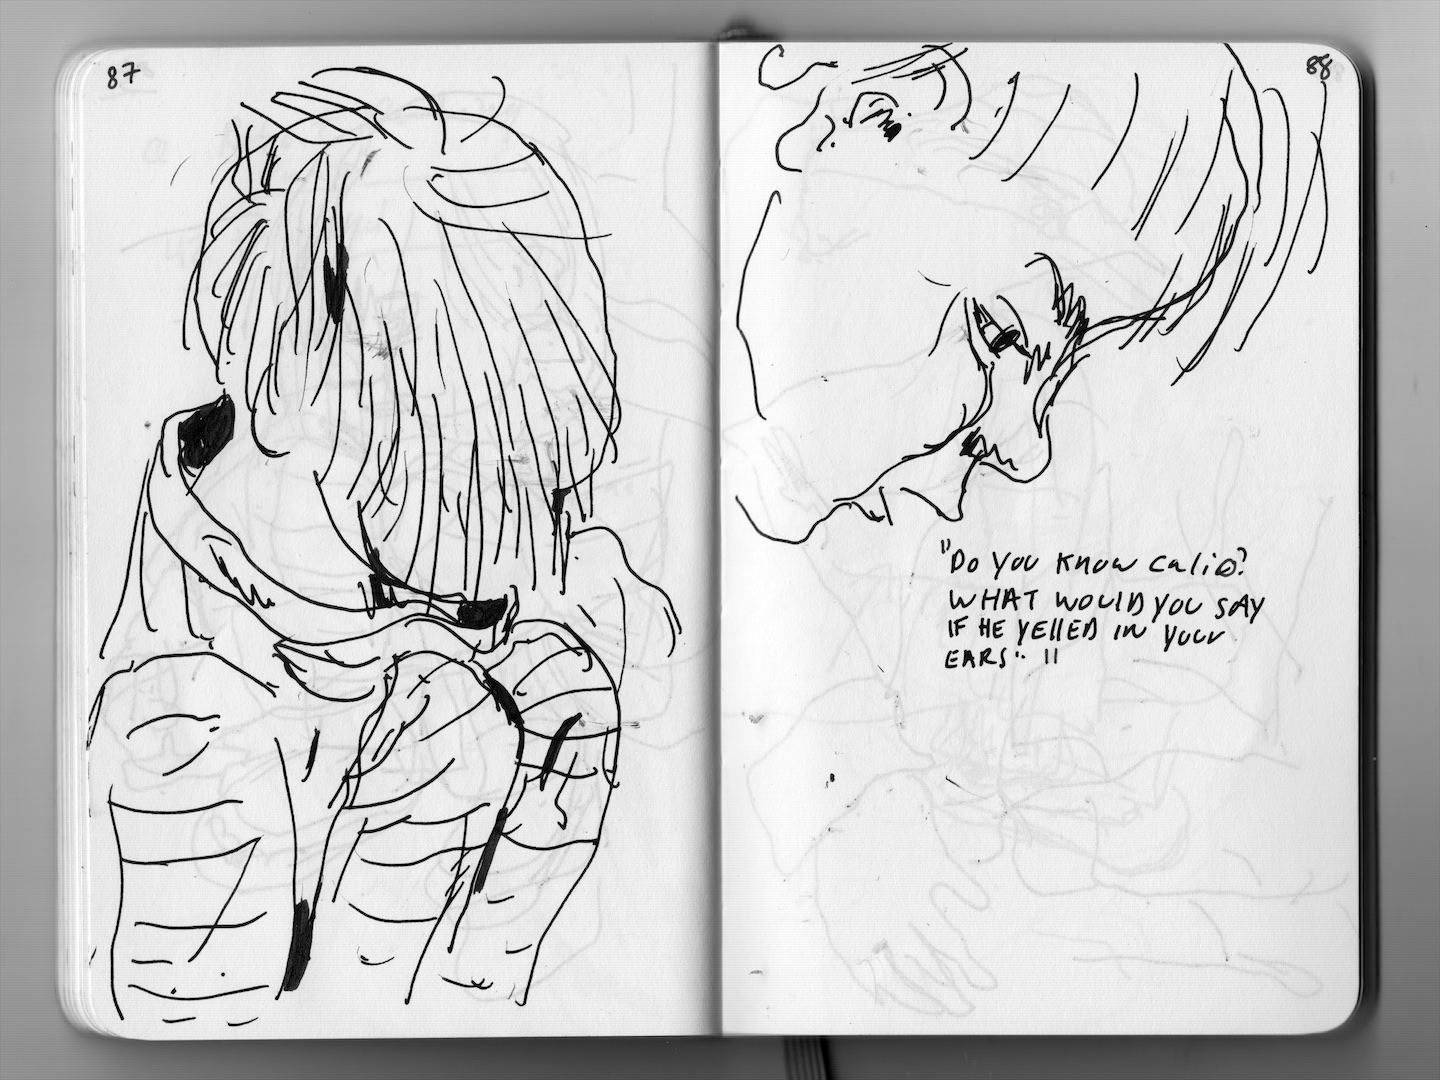 87
88
"Do you know calio?
WHAT WOULD YOU SAY
IF HE YELLED IN YOUR
EARS.. "